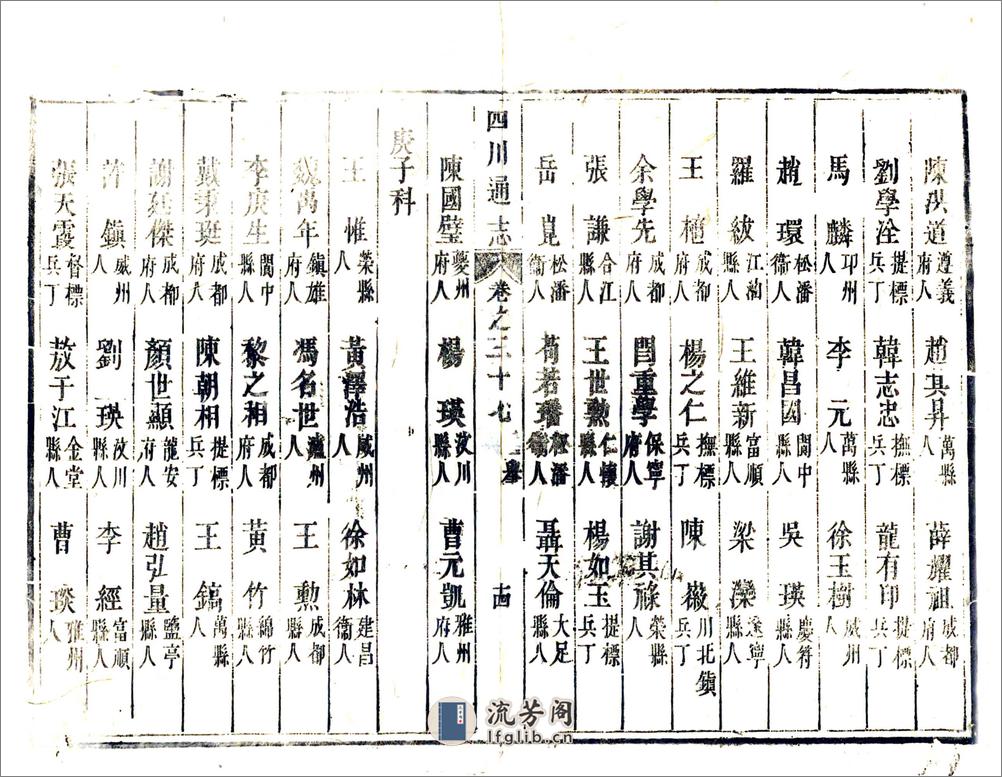 陳洪道遵義府人 趙其昇萬縣人 薛耀祖成都府人
劉學淦提標兵丁 韓志忠撫標兵丁 龍有印提標兵丁
馬麟邛州人 李元萬縣人 徐玉樹威州人
趙環松潘衞人 韓昌國閬中縣人 吳瑛慶符縣人
羅紱江油縣人 王維新富順縣人 梁灤遂寧縣人
王㮛成都府人 楊之仁撫標兵丁 陳嶶川北鎮兵丁
余學先成都府人 閆重學保寧府人 謝其祿榮縣人
張謙合江縣人 王世勲仁懷縣人 楊如玉提標兵丁
岳崑松潘衞人 荀若璠松潘衞人 聶天倫大足縣人
陳國璧夔州府人 楊瑛汶川縣人 曹元凱雅州府人
四川通志 卷之三十七 舉 十四
庚子科
王惟榮縣人 黃澤浩威州人 徐如林建昌衞人
魏萬年鎮雄府人 馮名世瀘州人 王勲成都縣人
李庚生閬中縣人 黎之相成都府人 黃竹綿竹縣人
戴秉珽成都府人 陳朝相提標兵丁 王鎬萬縣人
謝廷傑成都府人 顏世顯龍安府人 趙弘量鹽亭縣人
許鎮威州人 劉瑛汶川縣人 李經富順縣人
張天霞督標兵丁 敖于江金堂縣人 曹琰雅州人
流芳阁
lfglib.cn